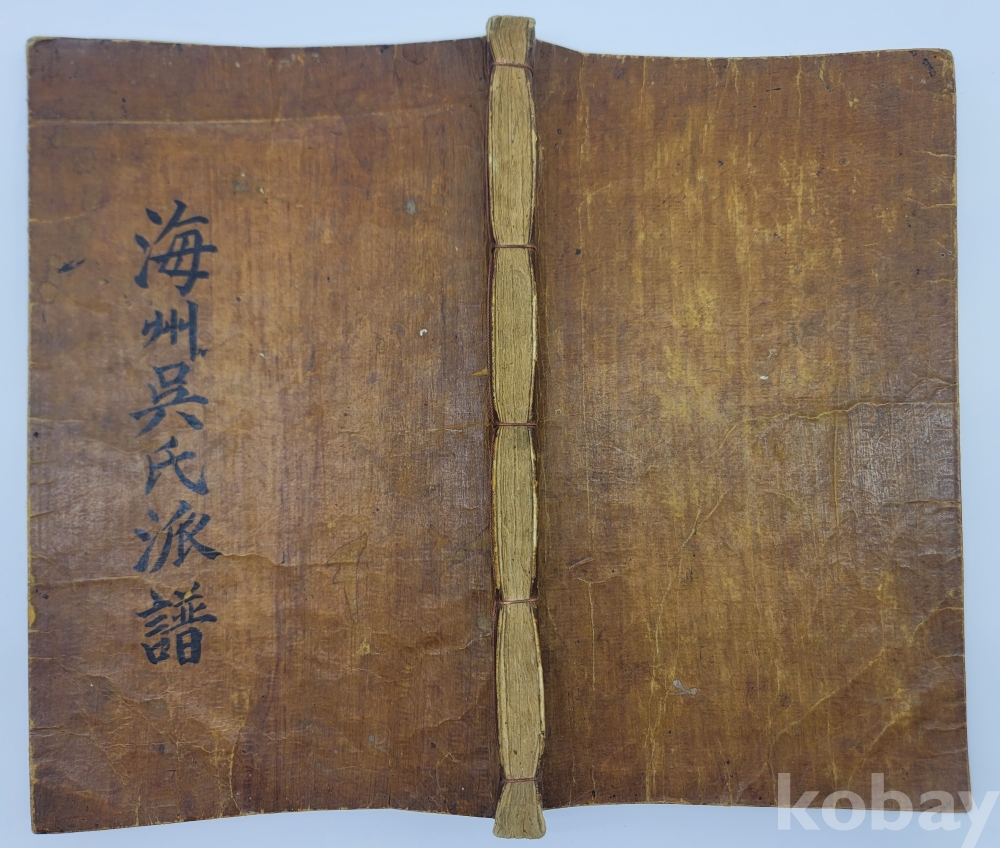 海州吳氏派譜
kobay